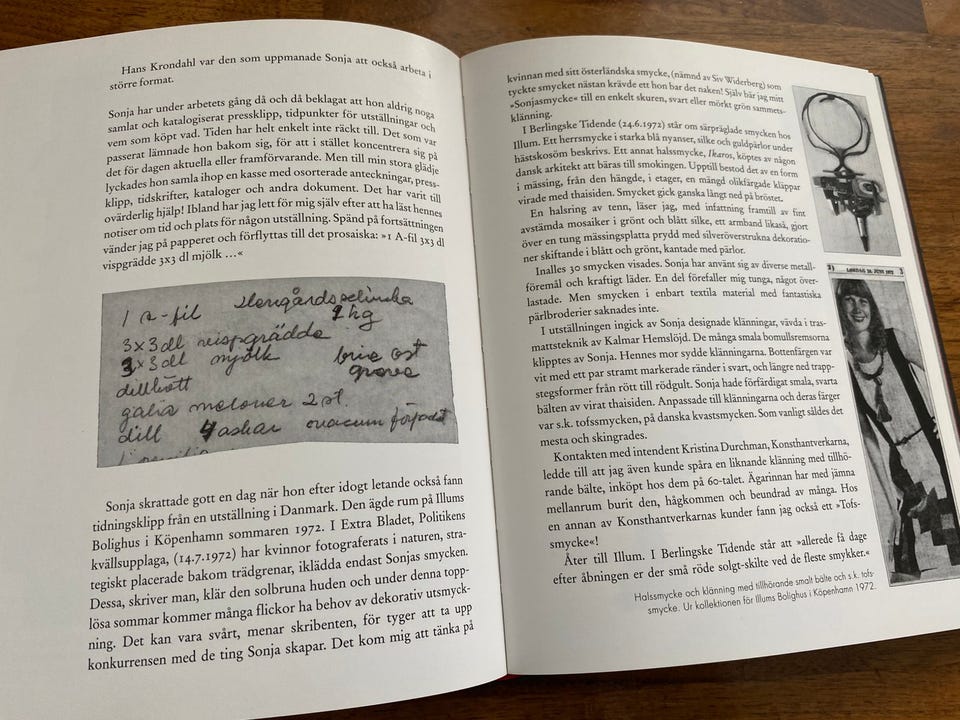 Hans Krondahl var den som uppmanade Sonja att också arbeta i
större format.
Sonja har under arbetets gång då och då beklagat att hon aldrig noga
samlat och katalogiserat pressklipp, tidpunkter för utställningar och
vem som köpt vad. Tiden har helt enkelt inte räckt till. Det som var
passerat lämnade hon bakom sig, för att i stället koncentrera sig på
det för dagen aktuella eller framförvarande. Men till min stora glädje
lyckades hon samla ihop en kasse med osorterade anteckningar, press-
klipp, tidskrifter, kataloger och andra dokument. Det har varit till
ovärderlig hjälp! Ibland har jag lett för mig själv efter att ha läst hennes
notiser om tid och plats för någon utställning. Spänd på fortsättningen
vänder jag på papperet och förflyttas till det prosaiska: »1 A-fil 3x3 dl
vispgrädde 3x3 dl mjölk ...«
1 a-fil
1 kg
3x3 dl vispgrädde
3x3 dl mjölk brie ost
grova
dillkött
galia meloner 2 st.
dill 4 askar
Sonja skrattade gott en dag när hon efter idogt letande också fann
tidningsklipp från en utställning i Danmark. Den ägde rum på Illums
Bolighus i Köpenhamn sommaren 1972. I Extra Bladet, Politikens
kvällsupplaga, (14.7.1972) har kvinnor fotograferats i naturen, stra-
tegiskt placerade bakom trädgrenar, iklädda endast Sonjas smycken.
Dessa, skriver man, klär den solbruna huden och under denna topp-
lösa sommar kommer många flickor ha behov av dekorativ utsmyck-
ning. Det kan vara svårt, menar skribenten, för tyger att ta upp
konkurrensen med de ting Sonja skapar. Det kom mig att tänka på
kvinnan med sitt österländska smycke, (nämnd av Siv Widerberg) som
tyckte smycket nästan krävde ett hon bar det naken! Själv bär jag mitt
»Sonjasmycke« till en enkelt skuren, svart eller mörkt grön sammets-
klänning.
I Berlingske Tidende (24.6.1972) står om särpräglade smycken hos
Illum. Ett herrsmycke i starka blå nyanser, silke och guldpärlor under
hästskosöm beskrivs. Ett annat halssmycke, Ikaros, köptes av någon
dansk arkitekt att bäras till smokingen. Upptill bestod det av en form
i mässing, från den hängde, i etager, en mängd olikfärgade kläppar
virade med thaisiden. Smycket gick ganska långt ned på bröstet.
En halsring av tenn, läser jag, med infattning framtill av fint
avstämda mosaiker i grönt och blått silke, ett armband likaså, gjort
över en tung mässingsplatta prydd med silveröverstrukna dekoratio-
ner skiftande i blått och grönt, kantade med pärlor.
Inalles 30 smycken visades. Sonja har använt sig av diverse metall-
föremål och kraftigt läder. En del förefaller mig tunga, något över-
lastade. Men smycken i enbart textila material med fantastiska
pärlbroderier saknades inte.
I utställningen ingick av Sonja designade klänningar, vävda i tras-
mattsteknik av Kalmar Hemslöjd. De många smala bomullsremsorna
klipptes av Sonja. Hennes mor sydde klänningarna. Bottenfärgen var
vit med ett par stramt markerade ränder i svart, och längre ned trapp-
stegsformer från rött till rödgult. Sonja hade förfärdigat smala, svarta
bälten av virat thaisiden. Anpassade till klänningarna och deras färger
var s.k. tofssmycken, på danska kvastsmycken. Som vanligt såldes det
mesta och skingrades.
Kontakten med intendent Kristina Durchman, Konsthantverkarna,
ledde till att jag även kunde spåra en liknande klänning med tillhö-
rande bälte, inköpt hos dem på 60-talet. Ägarinnan har med jämna
mellanrum burit den, hågkommen och beundrad av många. Hos
en annan av Konsthantverkarnas kunder fann jag också ett »Tofs-
smycke«!
Åter till Illum. I Berlingske Tidende står att »allerede få dage
efter åbningen er der små röde solgt-skilte ved de fleste smykker.«
Halssmycke och klänning med tillhörande smalt bälte och s.k. tofs-
smycke. Ur kollektionen för Illums Bolighus i Köpenhamn 1972.